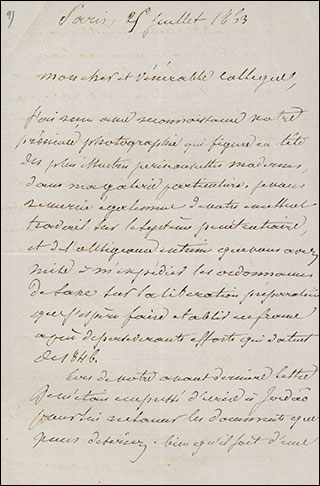 Paris, 25 juillet 1853
Mon cher et vénérable collègue,
J'ai reçu avec reconnaissance votre
précieuse photographie qui figure en tête
des plus illustres personnalités modernes,
dans ma galerie particulière. Je vous
remercie également de votre excellent
travail sur le système pénitentiaire,
et de l'obligeance extrême que vous avez
mise à m'expédier les ordonnances
de Saxe sur la libération préparatoire
que j'espère faire établir en france
après de persévérants efforts qui datent
de 1846.
Lors de votre avant dernière lettre
je m'étais empressé d'écrire à Jordão
pour lui réclamer les documents que
vous désirez. bien qu'il soit d'une